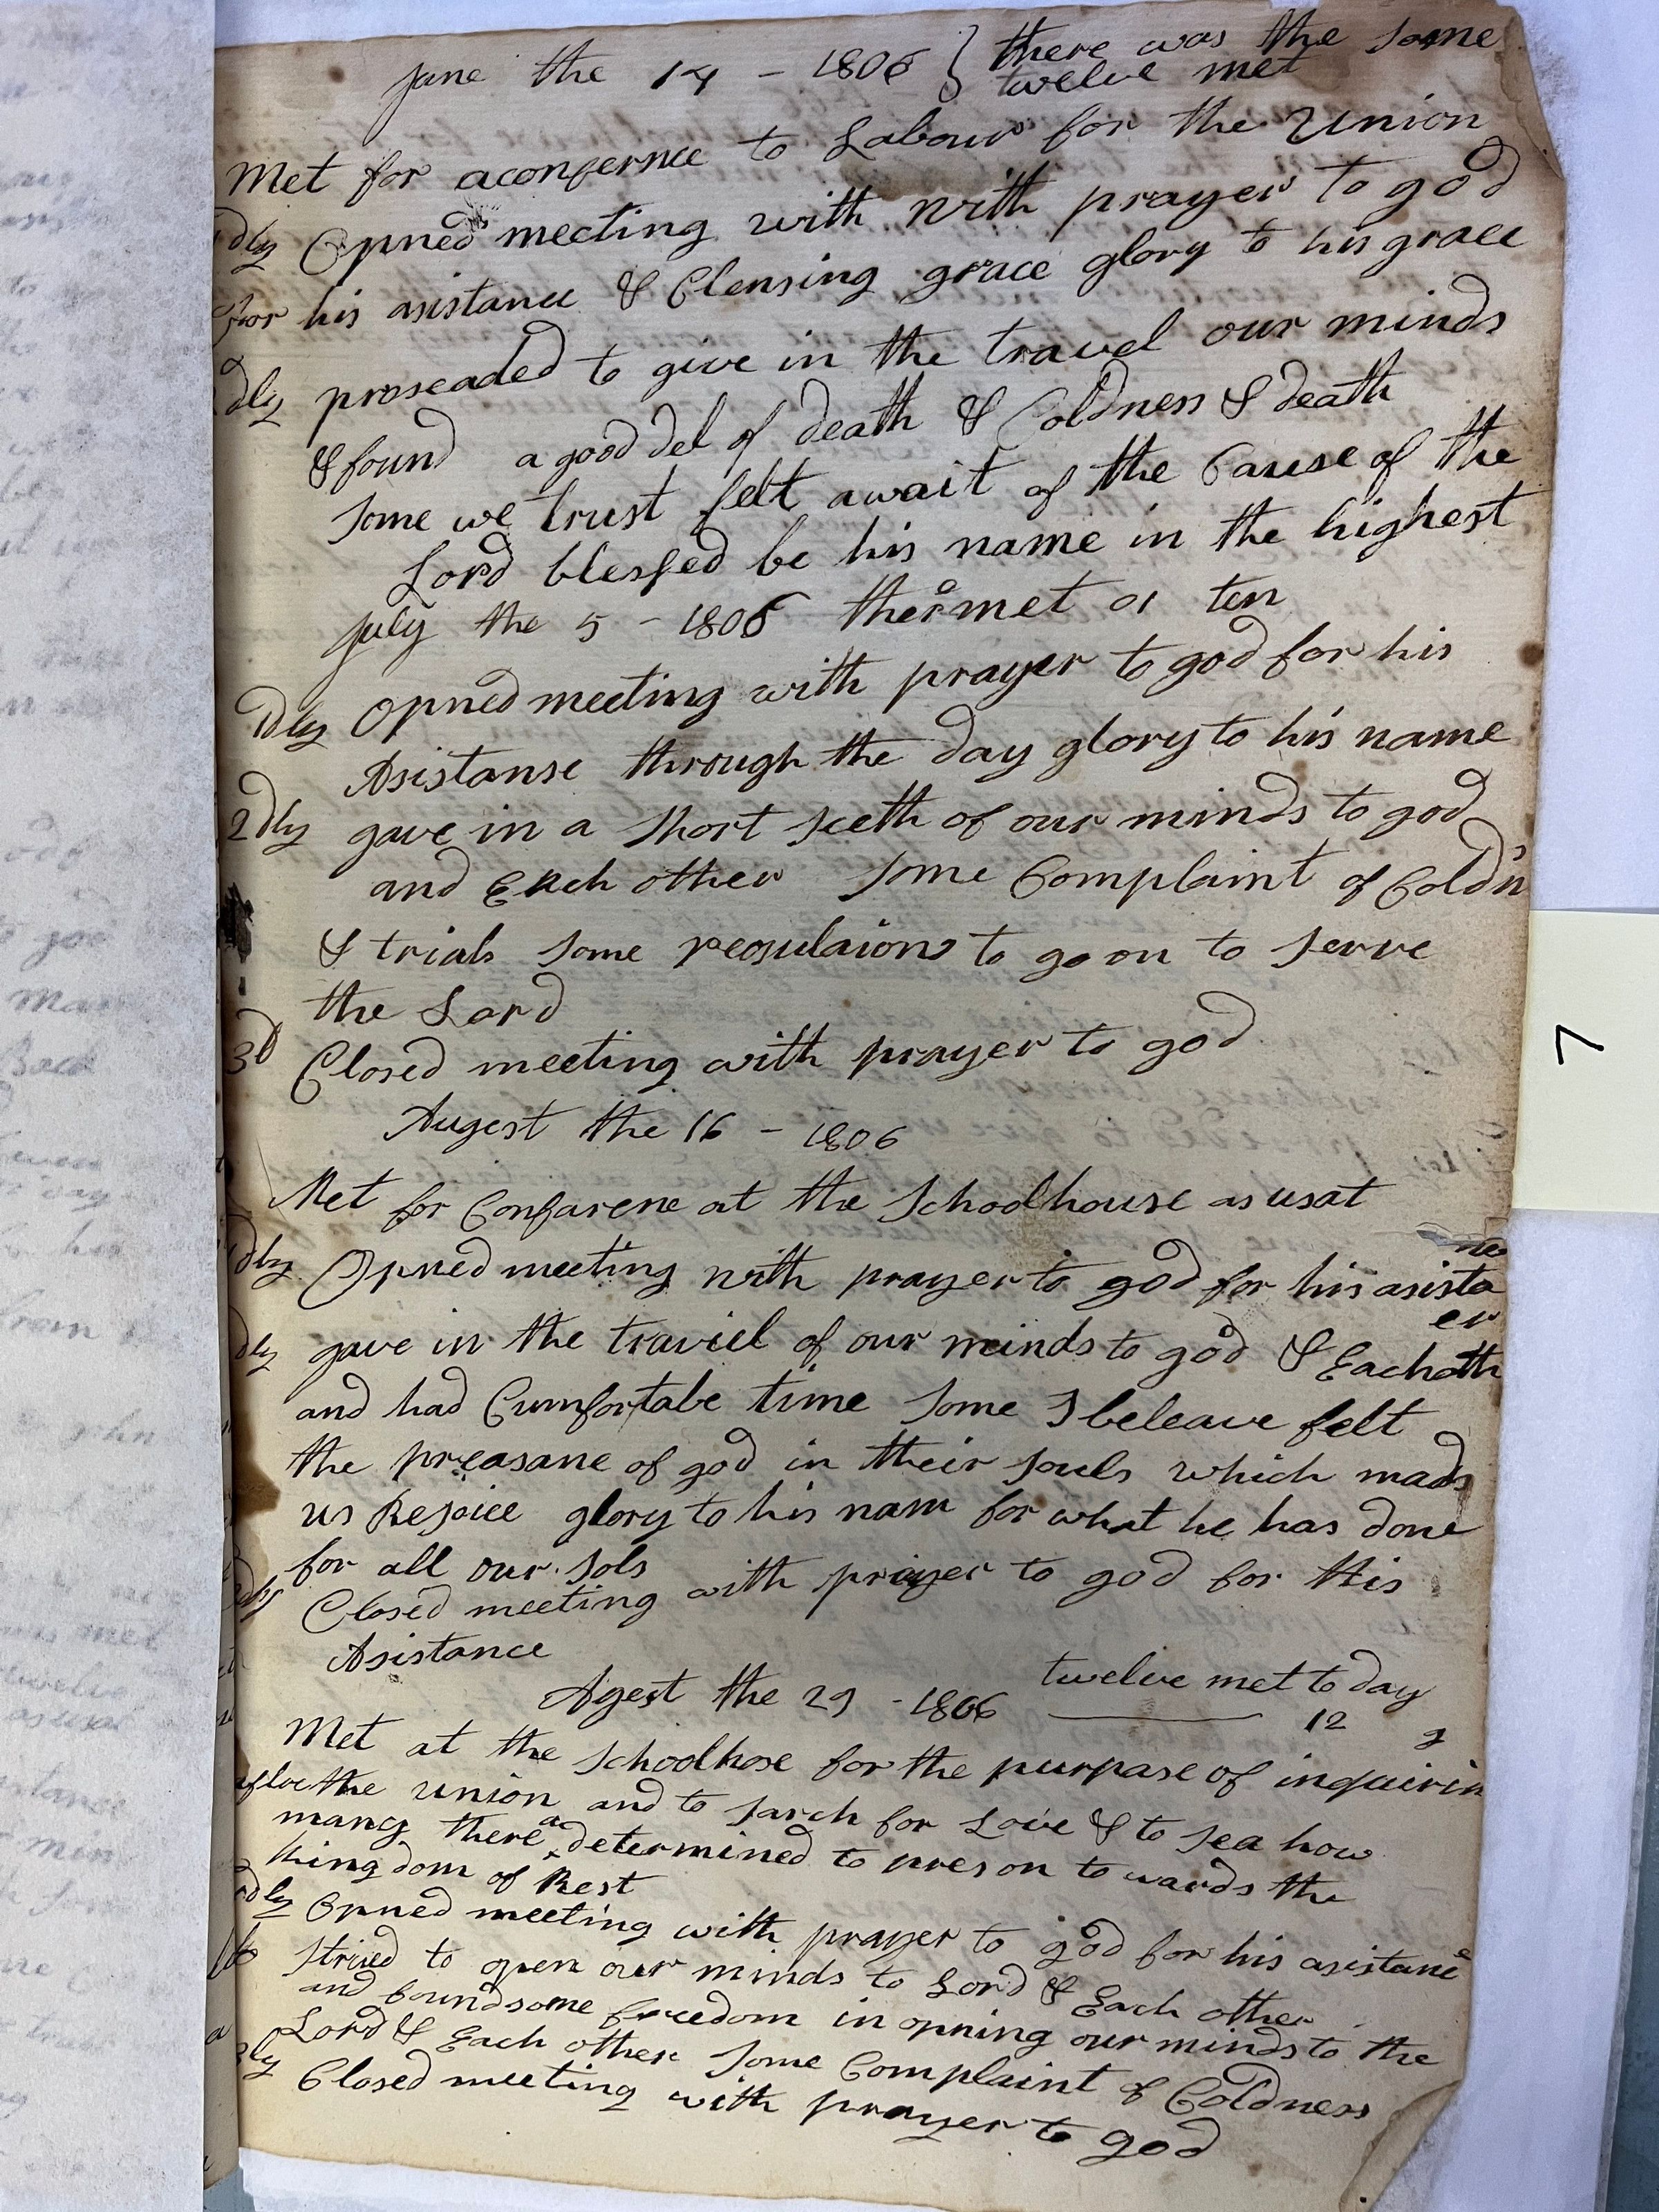 June the 14 - 1806 } there was the same
twelve met
Met for aconfernce to Labour for the Union
dly Opned meeting with with prayer to god
for his asistance & Clensing grace glory to his grace
dly proseaded to give in the travel our minds
& found a good del of death & Coldness & death
some we trust felt await of the Cause of the
Lord blessed be his name in the highest
july the 5 - 1806 ther met 01 ten
1dly Opned meeting with prayer to god for his
Asistanse through the day glory to his name
2dly gave in a short seeth of our minds to god
and Each other some Complaint of Coldn's
& trials some resulaions to go on to serve
the Lord
3d Closed meeting with prayer to god
Augest the 16 - 1806
Met for Confarene at the Schoolhouse as usat
dly Opned meeting with prayer to god for his asista
ne
dly gave in the traviel of our minds to god & Each oth
er
and had Cumfortabe time some I beleave felt
the preasane of god in their souls which mads
us Rejoice glory to his nam for what he has done
for all our sols
dly Closed meeting with prayer to god for His
Asistance
Agest the 29 - 1806 twelve met to day
12
Met at the schoolhose for the purpase of inquirin
g
the union and to sarch for Love & to sea how
many there a determined to pres on to wards the
kingdom of Rest
dly Opned meeting with prayer to god for his asistane
strived to open our minds to Lord & Each other
and found some freedom in opning our minds to the
Lord & Each other some Complaint of Coldness
3ly Closed meeting with prayer to god
7